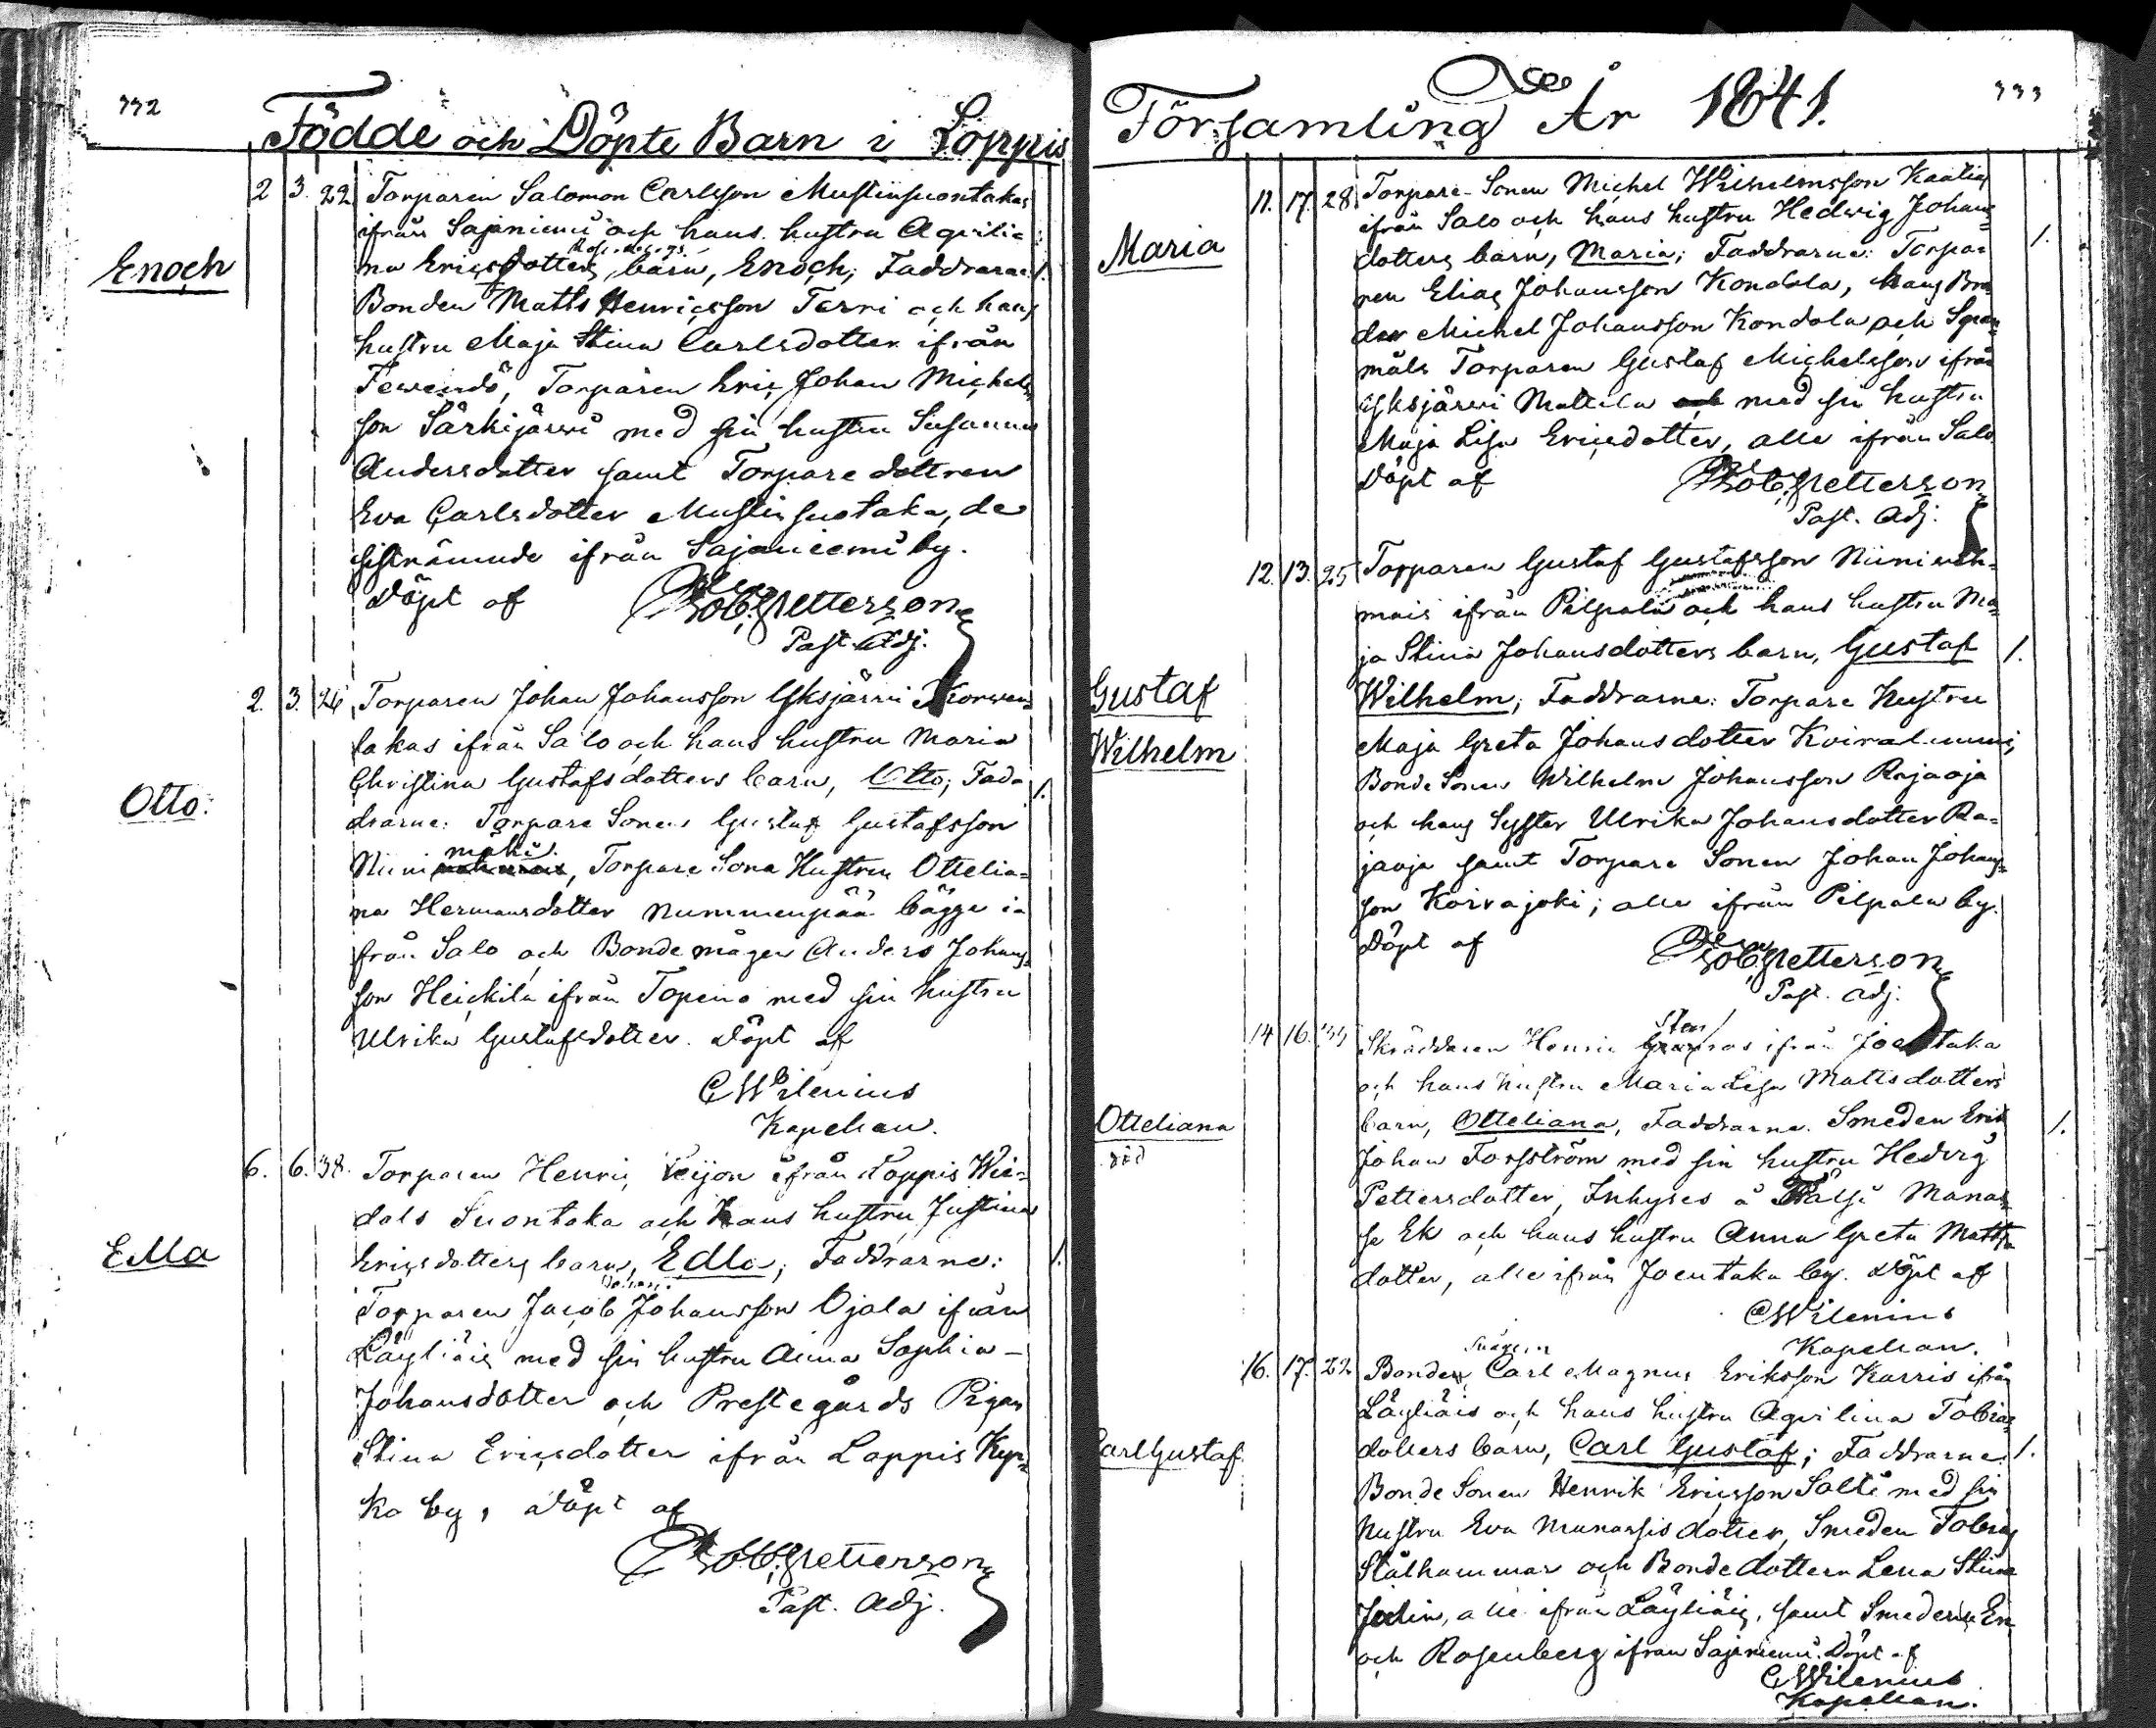 332
Födde och Döpte Barn i Loppis
2 3. 22. Torparen Salomon Carlsson Mustinsuontakas
ifrån Sajaniemi och hans hustru Aqvilia=
Enoch
na Ericsdotters barn, Enoch; Faddrarne: 1.
Bonden Matts Henricsson Terri och hans
hustru Maja Stina Carlsdotter ifrån
Tewendö, Torparen Eric Johan Michels=
son Särkijärwi med sin hustru Susanna
Andersdotter samt Torpare dottren
Eva Carlsdotter Mustinsuotaka, de
sistnämnde ifrån Sajaniemi by.
Döpt af Rob. Petterson
Past. Adj.
2. 3. 24. Torparen Johan Johansson Yksjärwi Korwen=
takas ifrån Salo och hans hustru Maria
Christina Gustafsdotters barn, Otto; Fad= 1.
Otto.
drarne: Torpare Sonen Gustaf Gustafsson
mäki
Niini, Torpare Sona Hustrun Ottelia=
na Hermansdotter Nummenpää bägge i=
från Salo och Bondemågen Anders Johans=
son Heickilä ifrån Topeno med sin hustru
Ulrika Gustafsdotter. Döpt af
C Wilenius
Kapellan.
6. 6. 38. Torparen Henric Leijon ifrån Loppis Wie=
dals Suontaka och hans hustru Justina
Edla
Ericsdotters barn, Edla; Faddrarne: 1.
Torparen Jacob Johansson Ojala ifrån
Läyliäis med sin hustru Anna Sophia
Johansdotter och Prestegårds Pigan
Stina Ericsdotter ifrån Loppis Kyr=
ko by, Döpt af
Rob. Petterson
Past. Adj.
Församling År 1841.
333
11. 17. 28. Torpare-Sonen Michel Wilhelmsson Kaatia
ifrån Salo och hans hustru Hedwig Johans=
Maria
dotters barn, Maria; Faddrarne: Torpa= 1.
ren Elias Johansson Kondola, hans Bro=
der Michel Johansson Kondola och Span=
måls Torparen Gustaf Michelsson ifrån
Yksjärwi Mattila med sin hustru
Maja Lisa Ericsdotter, alle ifrån Salo
Döpt af Rob. Petterson
Past. Adj.
12. 13. 25 Torparen Gustaf Gustafsson Niiniweh=
mais ifrån Pilpala och hans hustru Ma=
ja Stina Johansdotters barn, Gustaf 1.
Gustaf
Wilhelm
Wilhelm; Faddrarne: Torpare Hustru
Maja Greta Johansdotter Koivalummi,
Bonde Sonen Wilhelm Johansson Rajaoja
och hans Syster Ulrika Johansdotter Ra=
jaoja samt Torpare Sonen Johan Johans=
son Koivajoki; alle ifrån Pilpala by.
Döpt af Rob. Petterson
Past. Adj.
14 16. 35 Skräddaren Henric ifrån Joentaka
och hans hustru Maria Lisa Mattsdotters
Otteliana
barn, Otteliana, Faddrarne. Smeden Erik 1.
död
Johan Forsström med sin hustru Hedvig
Pettersdotter, Inhyses å Manas=
se Ek och hans hustru Anna Greta Matts=
dotter, alle ifrån Joentaka by. Döpt af
C Wilenius
Kapellan.
Mågen
16. 17. 22 Bonden Carl Magnus Eriksson Karris ifrån
Läyliäis och hans hustru Aqvilina Tobias=
Carl Gustaf
dotters barn, Carl Gustaf; Faddrarne 1.
Bonde Sonen Henrik Ericsson Salti med sin
Hustru Eva Manassisdotter, Smeden Tobias
Stålhammar och Bondedottern Lena Stina
alle ifrån Läyliäis, samt Smeden En=
och Rosenberg ifrån Sajaniemi. Döpt af
C Wilenius
Kapellan.